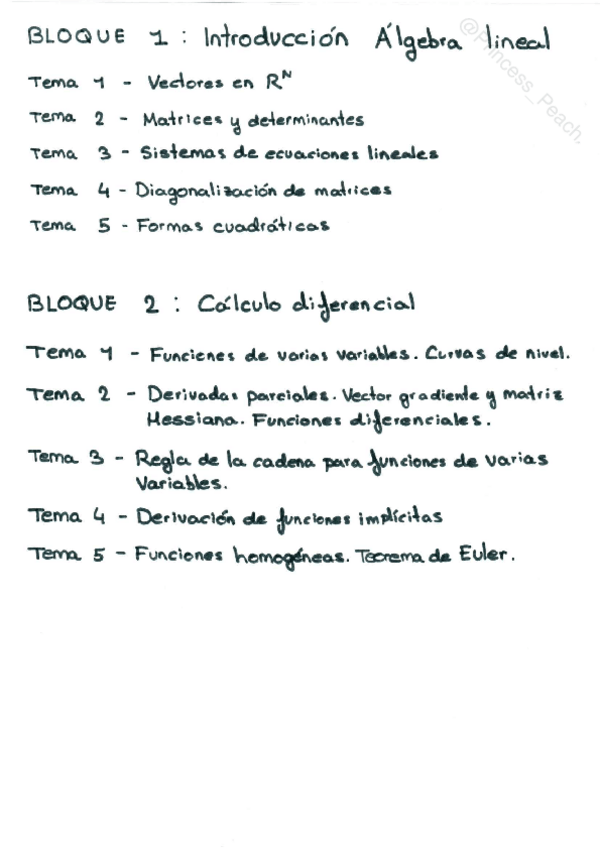 BLOQUE 1 : Introducción Álgebra lineal
@Princess_Peach.
Tema 1 - Vectores en Rᴺ
Tema 2 - Matrices y determinantes
Tema 3 - Sistemas de ecuaciones lineales
Tema 4 - Diagonalización de matrices
Tema 5 - Formas cuadráticas
BLOQUE 2 : Cálculo diferencial
Tema 1 - Funciones de varias variables. Curvas de nivel.
Tema 2 - Derivadas parciales. Vector gradiente y matriz
Hessiana. Funciones diferenciales.
Tema 3 - Regla de la cadena para funciones de varias
variables.
Tema 4 - Derivación de funciones implícitas
Tema 5 - Funciones homogéneas. Teorema de Euler.